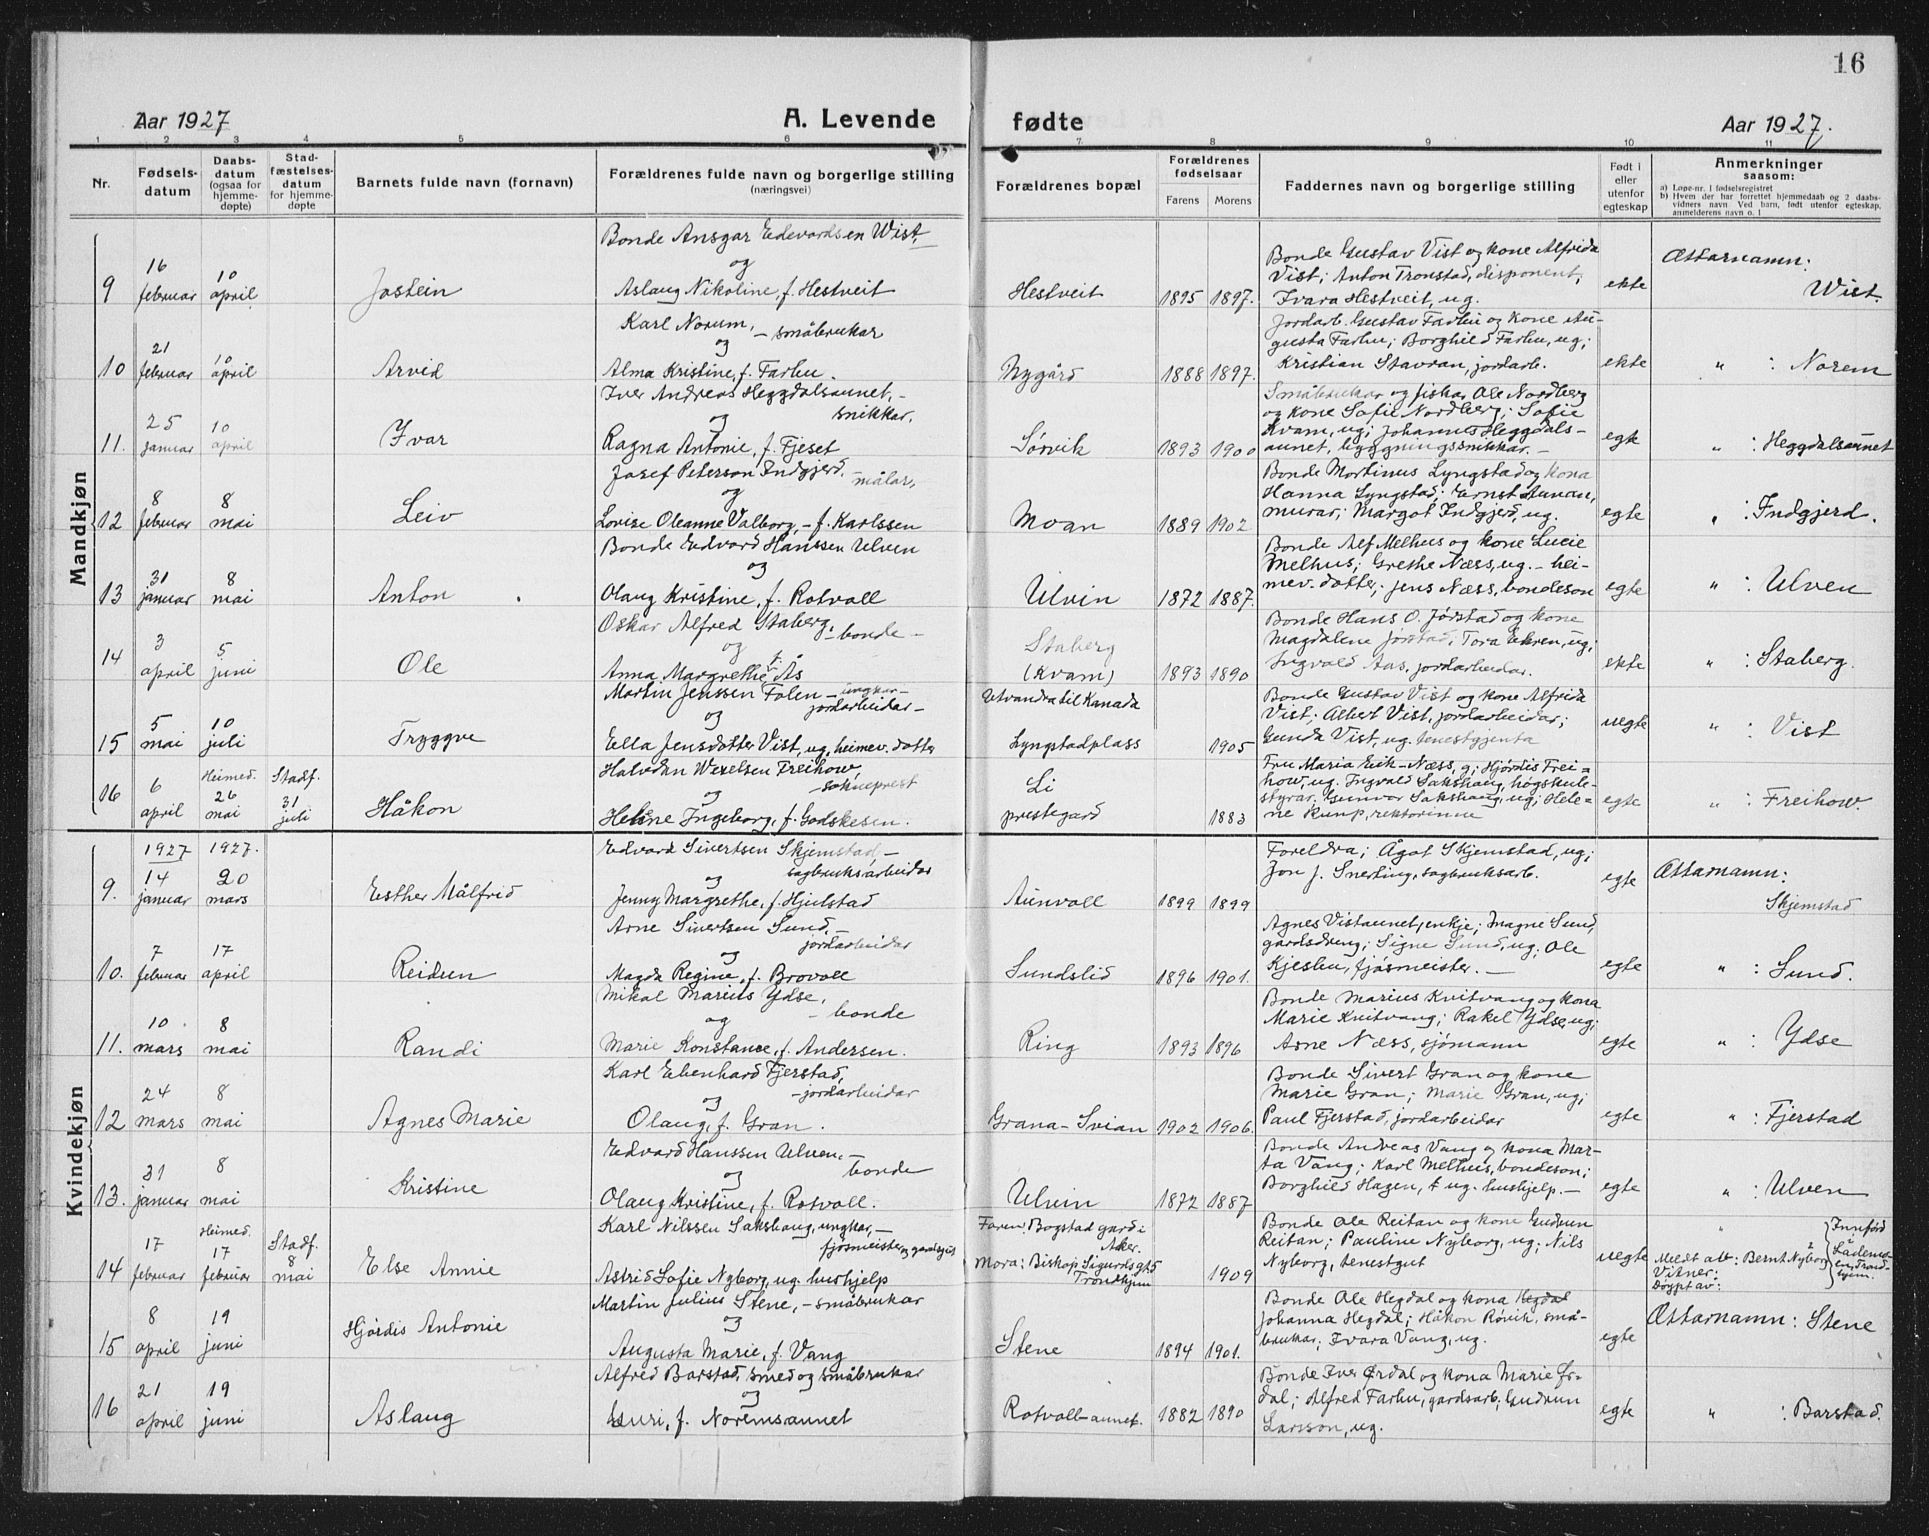 16
Aar 1927
A. Levende
fødte
Aar 1927.
1 2 3 4 5 6 7 8 9 10 11
Nr.
Fødsels-
datum
Daabs-
datum
(ogsaa for
hjemme-
døpte)
Stad-
fæstelses-
datum
for hjemme-
døpte
Barnets fulde navn (fornavn)
Forældrenes fulde navn og borgerlige stilling
(næringsvei)
Forældrenes bopæl
Forældrenes
fødselsaar
Farens Morens
Faddernes navn og borgerlige stilling
Født i
eller
utenfor
egteskap
Anmerkninger
saasom:
a) Løpe-nr. i fødselsregistret
b) Hvem der har forrettet hjemmedaab og 2 daabs-
vidners navn. Ved barn, født utenfor egteskap,
anmelderens navn o. l
Mandkjøn
9
16
februar
10
april
Jostein
Bonde Ansgar Edevardsen Wist,
og
Aslaug Nikoline, f. Hestveit
Hestveit
1895 1897.
Bonde Gustav Vist og kone Alfrida
Vist; Anton Tronstad, disponent;
Ivara Hestveit, ug.
ekte
Ættarnamn:
Wist.
10
21
februar
10
april
Arvid
Karl Norum, - småbrukar
og
Alma Kristine, f. Farhu.
Nygård
1888 1897.
Jordarb. Gustav Farhu og kone Au-
gusta Farhu; Borghild Farhu, ug;
Kristian Stavran, jordarb.
ekte
" : Norem
11.
25
januar
10
april
Ivar
Iver Andreas Heggdalsaunet, -
snikkar.
og
Ragna Antonie, f. Fjeset
Sørvik
1893 1900
Småbrukar og fiskar Ole Nordberg
og kone Sofie Nordberg; Sofie
Kvam, ug; Johannes Heggdals-
aunet, byggningssnikkar. -
egte
" : Heggdalsaunet
12
8
februar
8
mai
Leiv
Josef Peterson Indgjerd. - målar,
og
Lovise Oleanne Valborg, - f. Karlssen
Moan
1889 1902
Bonde Mortinus Lyngstad og kona
Hanna Lyngstad; Ernst Aunan,
murar; Margot Indgjerd, ug.
egte
" : Indgjerd.
13
31
januar
8
mai
Anton
Bonde Edvard Hanssen Ulven
og
Olaug Kristine, f. Rotvoll
Ulvin
1872 1887.
Bonde Alf Melhus og kone Lucie
Melhus; Grethe Næss, ug. - hei-
mev. dotter; Jens Næss, bondeson
egte
" : Ulven
14
3
april
5
juni
Ole
Oskar Alfred Staberg, - bonde -
og
Anna Margrethe f. Ås
Staberg
(Kvam)
1893 1890
Bonde Hans O. Jørstad og kone
Magdalene Jørstad; Tora Ekren, ug;
Ingvald Aas, jordarbeidar.
ekte
" : Staberg.
15
5
mai
10
juli
Tryggve
Martin Jenssen Folen - ungkar -
jordarbeidar -
og
Ella Jensdotter Vist, ug, heimev. dotter
Utvandra til Kanada
Lyngstadplass
1905
Bonde Gustav Vist og kone Alfrida
Vist; Albert Vist, jordarbeidar;
Gunda Vist, ug. tenestgjenta
uegte
" : Vist
16
6
april
Heimed.
26
mai
Stadf.
31
juli
Håkon
Halvdan Wexelsen Freihow,
- sokneprest
og
Helene Ingeborg, f. Godskesen.
Li
prestegard
1883
Fru Maria Eik-Næss, g; Hjørdis Frei=
how, ug. Ingvald Sakshaug, høgskule-
styrar, Gunvor Sakshaug, ug; Hele=
ne Rump, rektorinne
egte
" : Freihow.
Kvindekjøn
9.
1927
14
januar
1927.
20
mars
Esther Målfrid
Edvard Sivertsen Skjemstad, -
sagbruksarbeidar
og
Jenny Margrethe, f. Hjulstad
Aunvoll
1899 1899
Foreldra; Ågot Skjemstad, ug;
Jon J. Snerting, sagbruksarb.
egte
Ættarnamn:
Skjemstad
10.
7
februar
17
april
Reidun
Arne Sivertsen Sund, -
jordarbeidar
og
Magda Regine, f. Brovoll
Sundslid
1896 1901.
Agnes Vistaunet, enkje; Magne Sund,
gardsdreng; Signe Sund, ug; Ole
Kjeslu, fjøsmeister. -
egte
" : Sund.
11.
10
mars
8
mai
Randi
Mikal Marius Ydse,
- bonde
og
Marie Konstance, f. Andersen.
Ring
1893 1896
Bonde Marius Kvitvang og kona
Marie Kvitvang; Rakel Ydse, ug;
Arne Næss, sjømann
egte
" : Ydse
12
24
mars
8
mai
Agnes Marie
Karl Ebenhard Fjerstad,
- jordarbeidar
og
Olaug, f. Gran.
Grana-Svian
1902 1906.
Bonde Sivert Gran og kone
Marie Gran; Marie Gran, ug;
Paul Fjerstad, jordarbeidar
egte
" : Fjerstad
13.
31
januar
8
mai
Kristine
Edvard Hanssen Ulven, -
bonde
og
Olaug Kristine, f. Rotvoll.
Ulvin
1872 1887
Bonde Andreas Vang og kona Mar-
ta Vang; Karl Melhus, bondeson;
Borghild Hagen, ug. hushjelp. -
egte
" : Ulven
14
17
februar
Heimed.
17
februar
Stadf.
8
mai
Else Annie
Karl Nilssen Sakshaug, ungkar, -
fjøsmeister
Astrid Sofie Nyborg, ug. hushjelp
Faren: Bogstad gard i
Aker.
Mora: Biskop Sigurds gt 5
Trondhjem
1909
Bonde Ole Reitan og kone Gudrun
Reitan; Pauline Nyborg, ug; Nils
Nyborg, tenestgut
uegte
"
Meldt av: Bernt Nyborg
Vitner:
Døypt av:
Innførd
i
Lademo-
en, Trond-
hjem.
15
8
april
19
juni
Hjördis Antonie
Martin Julius Stene, - småbrukar
og
Augusta Marie, f. Vang
Stene
1894 1901.
Bonde Ole Hegdal og kona Hegdal
Johanna Hegdal; Håkon Røvik, små-
brukar; Ivara Vang, ug.
egte
Ættarnamn: Stene
16
21
april
19
juni
Aslaug
Alfred Barstad, smed og småbrukar
og
Guri, f. Noremsaunet
Rotvoll-aunet.
1882 1890
Bonde Iver Ørdal og kona Marie Ør-
dal; Alfred Farhu, gardsarb; Gudrun
Larsson, ug.
egte
" : Barstad.